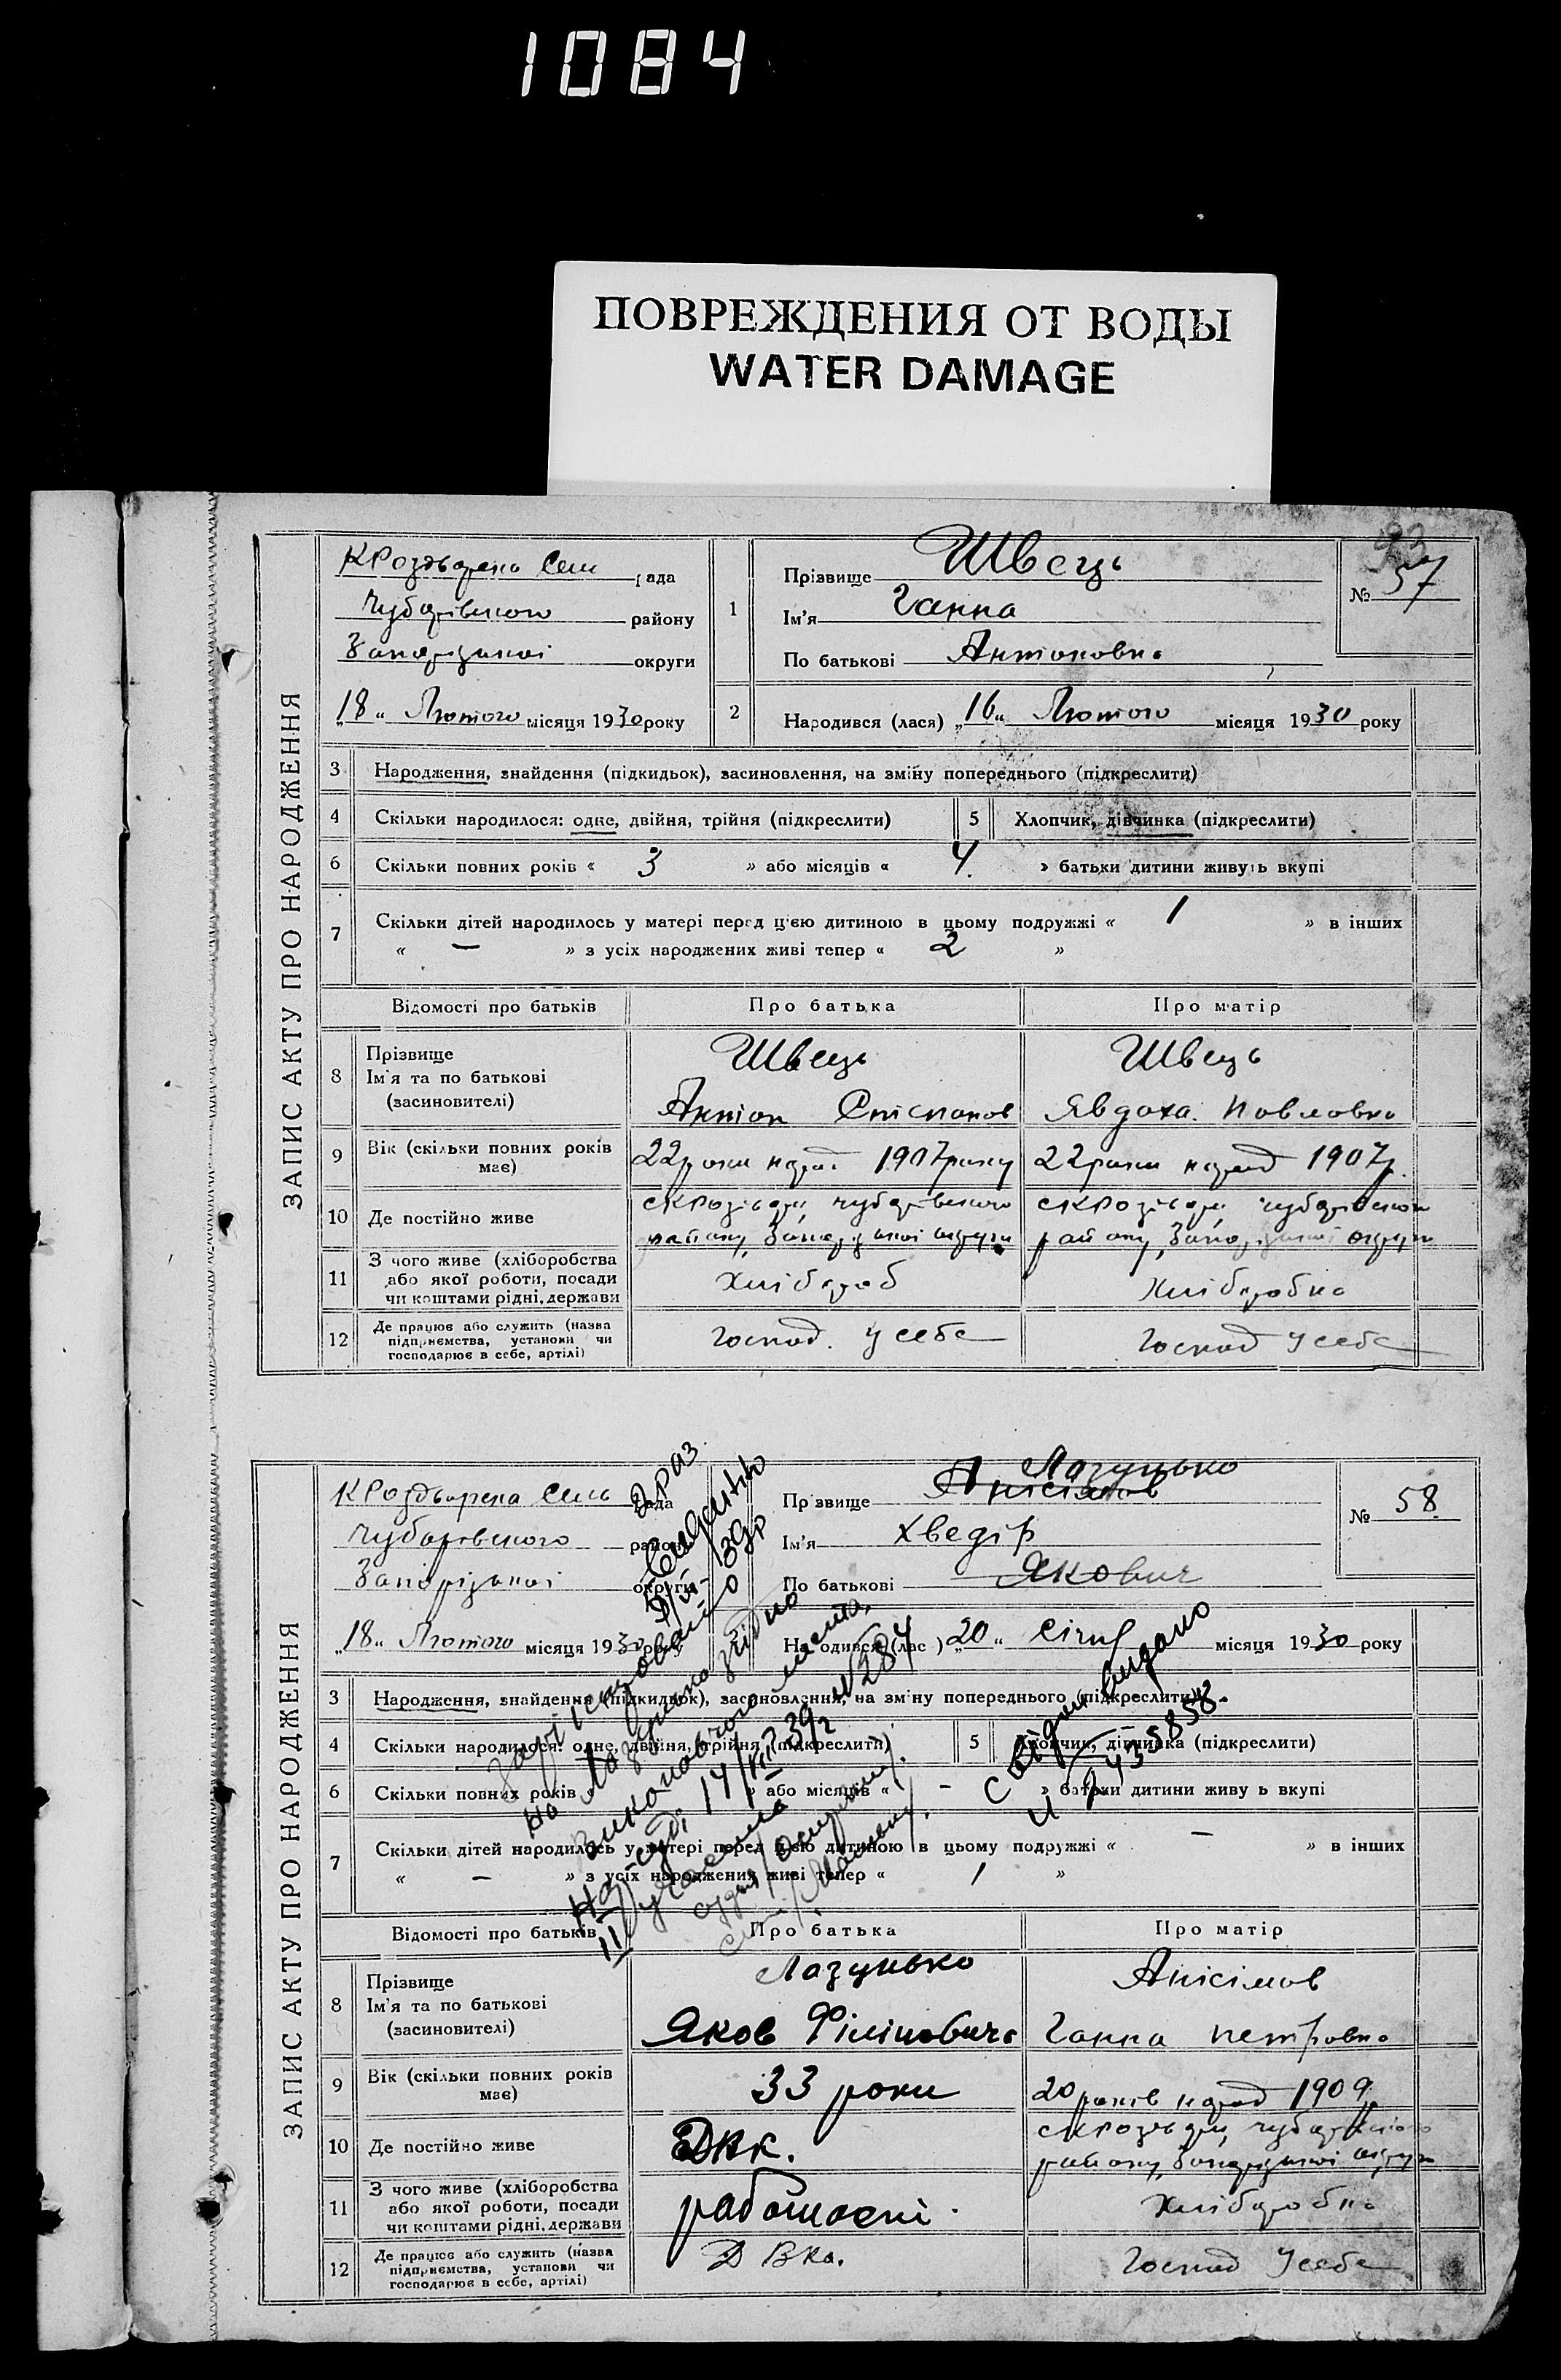 1084
ПОВРЕЖДЕНИЯ ОТ ВОДЫ
WATER DAMAGE
93
ЗАПИС АКТУ ПРО НАРОДЖЕННЯ
рада
Чубарівського району
Запорізької округи
„18“ Лютого місяця 1930 року
1
Прізвище Швець
Ім'я Ганна
По батькові Антоновна
№ 57
2
Народився (лася) „16“ Лютого місяця 1930 року
3 Народження, знайдення (підкидьок), засиновлення, на зміну попереднього (підкреслити)
4 Скільки народилося: одне, двійня, трійня (підкреслити)
5 Хлопчик, дівчинка (підкреслити)
6 Скільки повних років « 3 » або місяців « 4 » батьки дитини живуть вкупі
7 Скільки дітей народилось у матері перед цією дитиною в цьому подружжі « 1 » в інших
« — » з усіх народжених живі тепер « 2 »
Відомості про батьків Про батька Про матір
8 Прізвище
Ім'я та по батькові
(засиновителі)
Швець
Антон Стіспанов
Швець
Явдоха Павловна
9 Вік (скільки повних років має)
22 роки народ 1907 року
22 роки народ 1907 р.
10 Де постійно живе
Чубарівського
району, Запорізької округи
Чубарівського
району, Запорізької округи
11 З чого живе (хліборобства
або якої роботи, посади
чи коштами рідні, держави
Хлібороб
Хліборобка
12 Де працює або служить (назва
підприємства, установи чи
господарює в себе, артілі)
Господ. у себе
Господ у себе
ЗАПИС АКТУ ПРО НАРОДЖЕННЯ
рада
Чубарівського району
Запорізької округи
„18“ Лютого місяця 1930 року
Прізвище Анісімов Лазунько
Ім'я Хведір
По батькові Якович
№ 58
Народився (лас ) „20“ Січня місяця 1930 року
3 Народження, знайдення (підкидьок), засиновлення, на зміну попереднього (підкреслити)
4 Скільки народилося: одне, двійня, трійня (підкреслити)
5 Хлопчик, дівчинка (підкреслити)
6 Скільки повних років або місяців « — » батьки дитини живуть вкупі
7 Скільки дітей народилось у матері перед цією дитиною в цьому подружжі « — » в інших
« — » з усіх народжених живі тепер « 1 »
2 раз
на Лазунько згідно
виконавчого листа
14/VIII 39 р. № 284
участка
Свідоцтво видано
435858.
Відомості про батьків Про батька Про матір
8 Прізвище
Ім'я та по батькові
(засиновителі)
Лазунько
Яков Філіповичь
Анісімов
Ганна Петровна
9 Вік (скільки повних років має)
33 роки
20 років народ 1909 р.
10 Де постійно живе
Чубарівського
району, Запорізької округи
11 З чого живе (хліборобства
або якої роботи, посади
чи коштами рідні, держави
Хліборобка
12 Де працює або служить (назва
підприємства, установи чи
господарює в себе, артілі)
Господ у себе